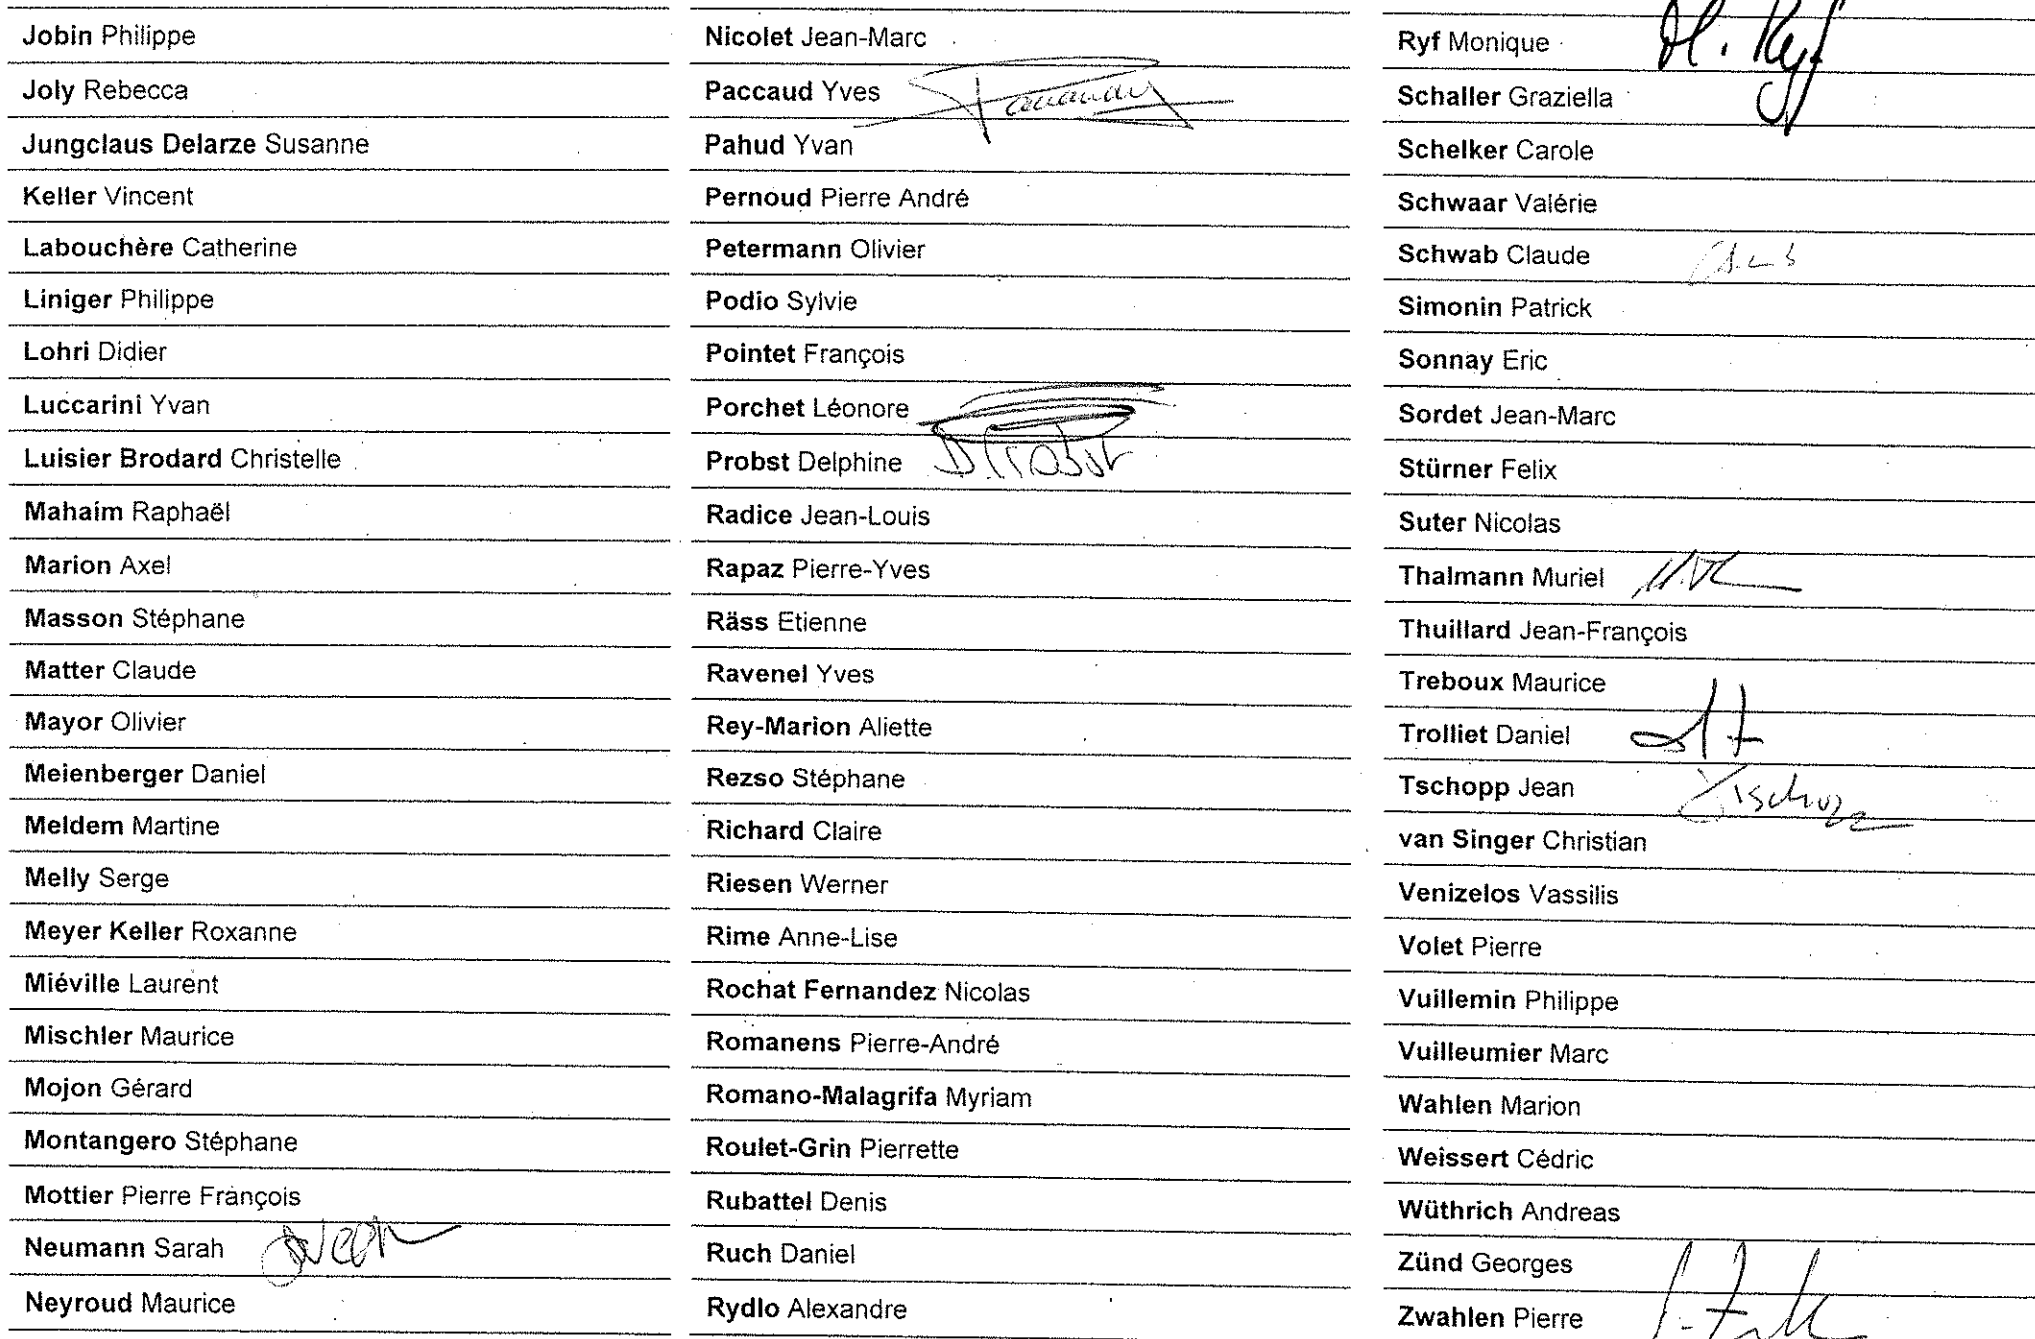 Jobin Philippe
Joly Rebecca
Jungclaus Delarze Susanne
Keller Vincent
Labouchère Catherine
Liniger Philippe
Lohri Didier
Luccarini Yvan
Luisier Brodard Christelle
Mahaim Raphaël
Marion Axel
Masson Stéphane
Matter Claude
Mayor Olivier
Meienberger Daniel
Meldem Martine
Melly Serge
Meyer Keller Roxanne
Miéville Laurent
Mischler Maurice
Mojon Gérard
Montangero Stéphane
Mottier Pierre François
Neumann Sarah
Neyroud Maurice
Nicolet Jean-Marc
Paccaud Yves
Pahud Yvan
Pernoud Pierre André
Petermann Olivier
Podio Sylvie
Pointet François
Porchet Léonore
Probst Delphine D Probst
Radice Jean-Louis
Rapaz Pierre-Yves
Räss Etienne
Ravenel Yves
Rey-Marion Aliette
Rezso Stéphane
Richard Claire
Riesen Werner
Rime Anne-Lise
Rochat Fernandez Nicolas
Romanens Pierre-André
Romano-Malagrifa Myriam
Roulet-Grin Pierrette
Rubattel Denis
Ruch Daniel
Rydlo Alexandre
Ryf Monique M. Ryf
Schaller Graziella
Schelker Carole
Schwaar Valérie
Schwab Claude
Simonin Patrick
Sonnay Eric
Sordet Jean-Marc
Stürner Felix
Suter Nicolas
Thalmann Muriel
Thuillard Jean-François
Treboux Maurice
Trolliet Daniel
Tschopp Jean Tschopp
van Singer Christian
Venizelos Vassilis
Volet Pierre
Vuillemin Philippe
Vuilleumier Marc
Wahlen Marion
Weissert Cédric
Wüthrich Andreas
Zünd Georges
Zwahlen Pierre